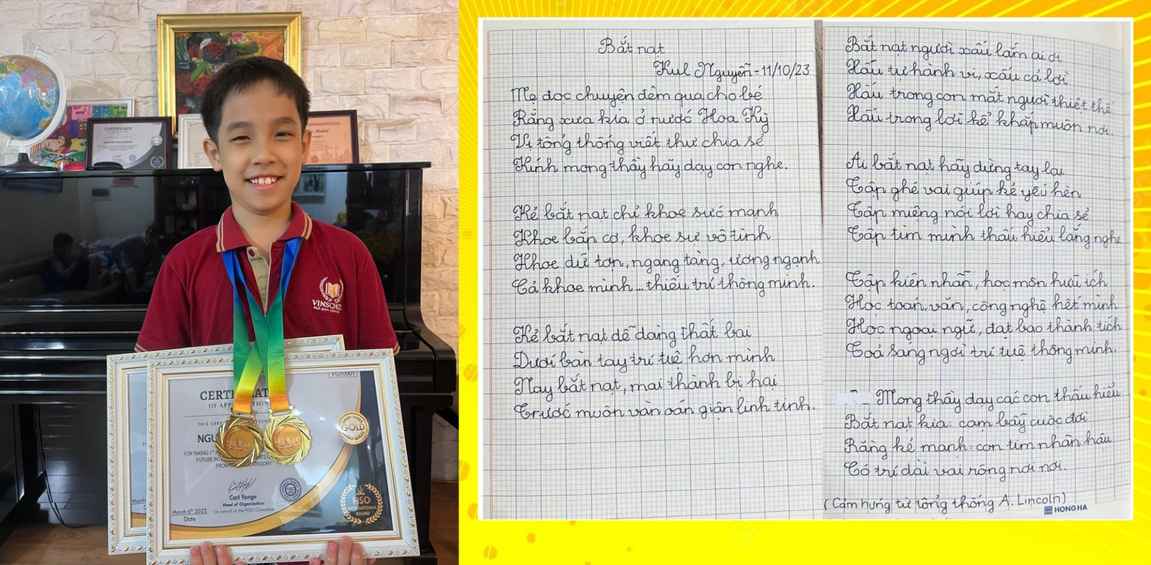 VINSCHOOL
CERTIFICAT
OF APP
NGU
GOLD
Cari Yonge
Head of Organization
March 5th 2023
Date
FISO
INTERNATIONAL
ROUND
Bắt nạt
Kul Nguyễn - 11/10/23
Mẹ đọc chuyện đêm qua cho bé
Rằng xưa kia ở nước Hoa Kỳ
Vị tổng thống viết thư chia sẻ
Kính mong thầy hãy dạy con nghe.
Kẻ bắt nạt chỉ khoe sức mạnh
Khoe bắp cơ, khoe sự vô tình
Khoe dữ tợn, ngang tàng, ương ngạnh
Cả khoe mình... thiếu trí thông minh.
Kẻ bắt nạt dễ dàng thất bại
Dưới bàn tay trí tuệ hơn mình
Nay bắt nạt, mai thành bị hại
Trước muôn vàn oán giận linh tinh.
Bắt nạt người xấu lắm ai ơi
Xấu từ hành vi, xấu cả lời
Xấu trong con mắt người thiệt thế
Xấu trong lời kể khắp muôn nơi.
Ai bắt nạt hãy dừng tay lại
Tập ghé vai giúp kẻ yếu hèn
Tập miệng nói lời hay chia sẻ
Tập tim mình thấu hiểu lắng nghe
Tập kiên nhẫn, học môn hữu ích
Học toán, văn, công nghệ hết mình
Học ngoại ngữ, đạt bao thành tích
Toả sáng ngời trí tuệ thông minh.
Mong thầy dạy các con thấu hiểu
Bắt nạt kia cạm bẫy cuộc đời
Rằng kẻ mạnh con tim nhân hậu
Có trí dài vai rộng nơi nơi.
(Cảm hứng từ tổng thống A. Lincoln)
HONG HA